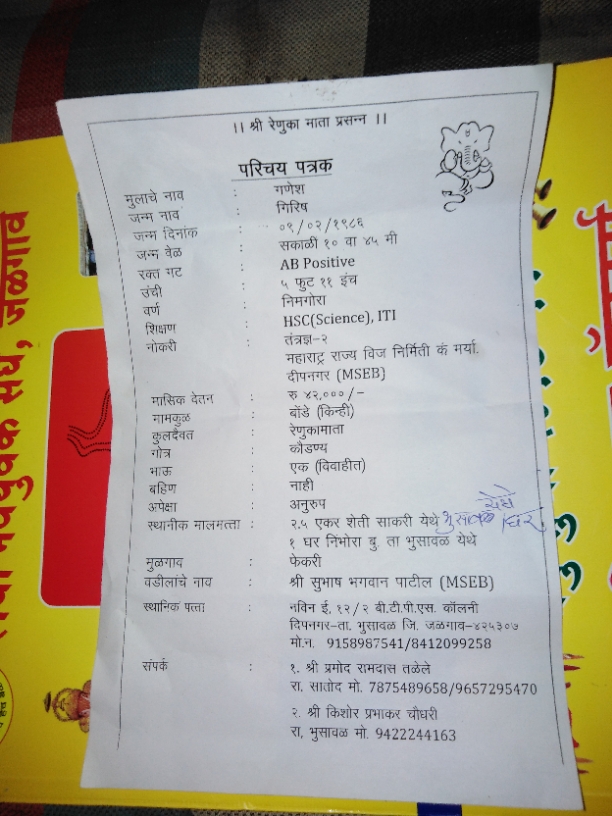 ।। श्री रेणुका माता प्रसन्न ।।
परिचय पत्रक
मुलाचे नाव : गणेश
जन्म नाव : गिरिष
जन्म दिनांक : ०९/०२/१९८६
जन्म वेळ : सकाळी १० वा ४५ मी
रक्त गट : AB Positive
उंदी : ५ फुट ११ इंच
वर्ण : निमगोरा
शिक्षण : HSC(Science), ITI
नोकरी : तंत्रज्ञ-२
महाराष्ट्र राज्य विज निर्मिती कं मर्या.
दीपनगर (MSEB)
मासिक वेतन : रु ४२,०००/-
मामकुळ : बोंडे (किन्ही)
कुलदैवत : रेणुकामाता
गोत्र : कौडण्य
भाऊ : एक (विवाहीत)
बहिण : नाही
अपेक्षा : अनुरुप
स्थानीक मालमत्ता : २.५ एकर शेती साकरी येथे भुसावळ येथे घर
१ घर निंभोरा बु. ता भुसावळ येथे
मुळगाव : फेकरी
वडीलांचे नाव : श्री सुभाष भगवान पाटील (MSEB)
स्थानिक पत्ता : नविन ई. १२/२ बी.टी.पी.एस. कॉलनी
दिपनगर-ता. भुसावळ जि. जळगाव-४२५३०७
मो.न. 9158987541/8412099258
संपर्क : १. श्री प्रमोद रामदास तळेले
रा. सातोद मो. 7875489658/9657295470
२. श्री किशोर प्रभाकर चौधरी
रा, भुसावळ मो. 9422244163
नवयुवक संघ, जळगाव